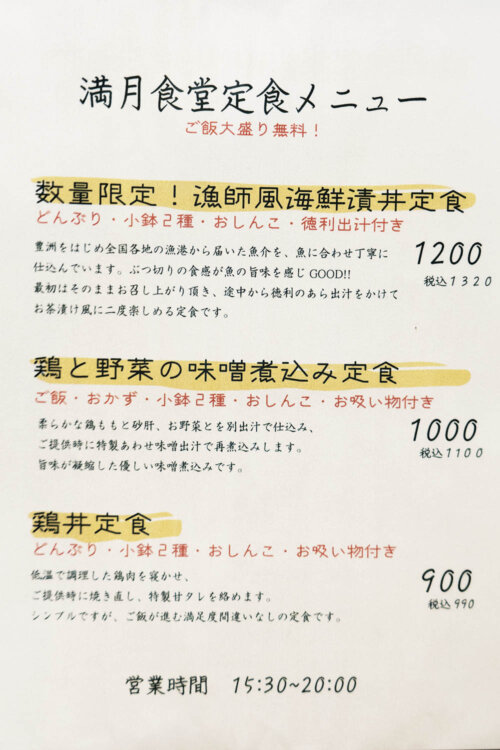 満月食堂定食メニュー
ご飯大盛り無料！
数量限定！漁師風海鮮漬丼定食
どんぶり・小鉢2種・おしんこ・徳利出汁付き
豊洲をはじめ全国各地の漁港から届いた魚介を、魚に合わせ丁寧に
仕込んでいます。ぶつ切りの食感が魚の旨味を感じGOOD!!
最初はそのままお召し上がり頂き、途中から徳利のあら出汁をかけて
お茶漬け風に二度楽しめる定食です。
1200
税込1320
鶏と野菜の味噌煮込み定食
ご飯・おかず・小鉢2種・おしんこ・お吸い物付き
柔らかな鶏ももと砂肝、お野菜とを別出汁で仕込み、
ご提供時に特製あわせ味噌出汁で再煮込みします。
旨味が凝縮した優しい味噌煮込みです。
1000
税込1100
鶏丼定食
どんぶり・小鉢2種・おしんこ・お吸い物付き
低温で調理した鶏肉を寝かせ、
ご提供時に焼き直し、特製甘タレを絡めます。
シンプルですが、ご飯が進む満足度間違いなしの定食です。
900
税込990
営業時間 15:30~20:00